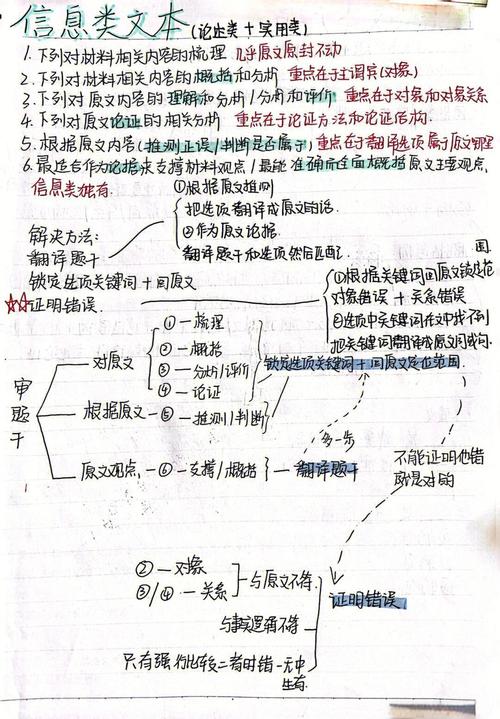 信息类文本(论述类+实用类)
1.下列对材料相关内容的梳理 几乎原文原封不动
2.下列对材料相关内容的概括和分析 重点在于主谓宾(对象)
3.下列对原文内容的理解和分析/分析和评价 重点在于对象和对象关系
4.下列对原文论证的相关分析 重点在于论证方法和论证结构
5.根据原文内容(推测正误/判断是否属于)重点在于翻译选项属于原文哪里
6.最适合作为论据来支撑材料观点/最能准确完全面概括原文主要观点
信息类独有
①根据原文推测
把选项翻译成原文的话.
②作为原文论据.
翻译题干和选项然后匹配.
解决方法:
翻译题干
锁定选项关键词+回原文
证明错误.
①根据关键词回原文锁定范围
对象错误+关系错误
②选项中关键词在文中找不到
把关键词翻译成原文词或句.
审题干
对原文
①—梳理
②—概括
③—分析/评价
④—论证
锁定选项关键词+回原文定位范围.
根据原文—⑤—推测/判断
多一步
原文观点—⑥—支撑/概括—翻译题干
不能证明他错
就是对的
②—对象
③/④—关系
与原文不符
证明错误
与事实逻辑不符
只有强行比较二者时错—无中
生有.